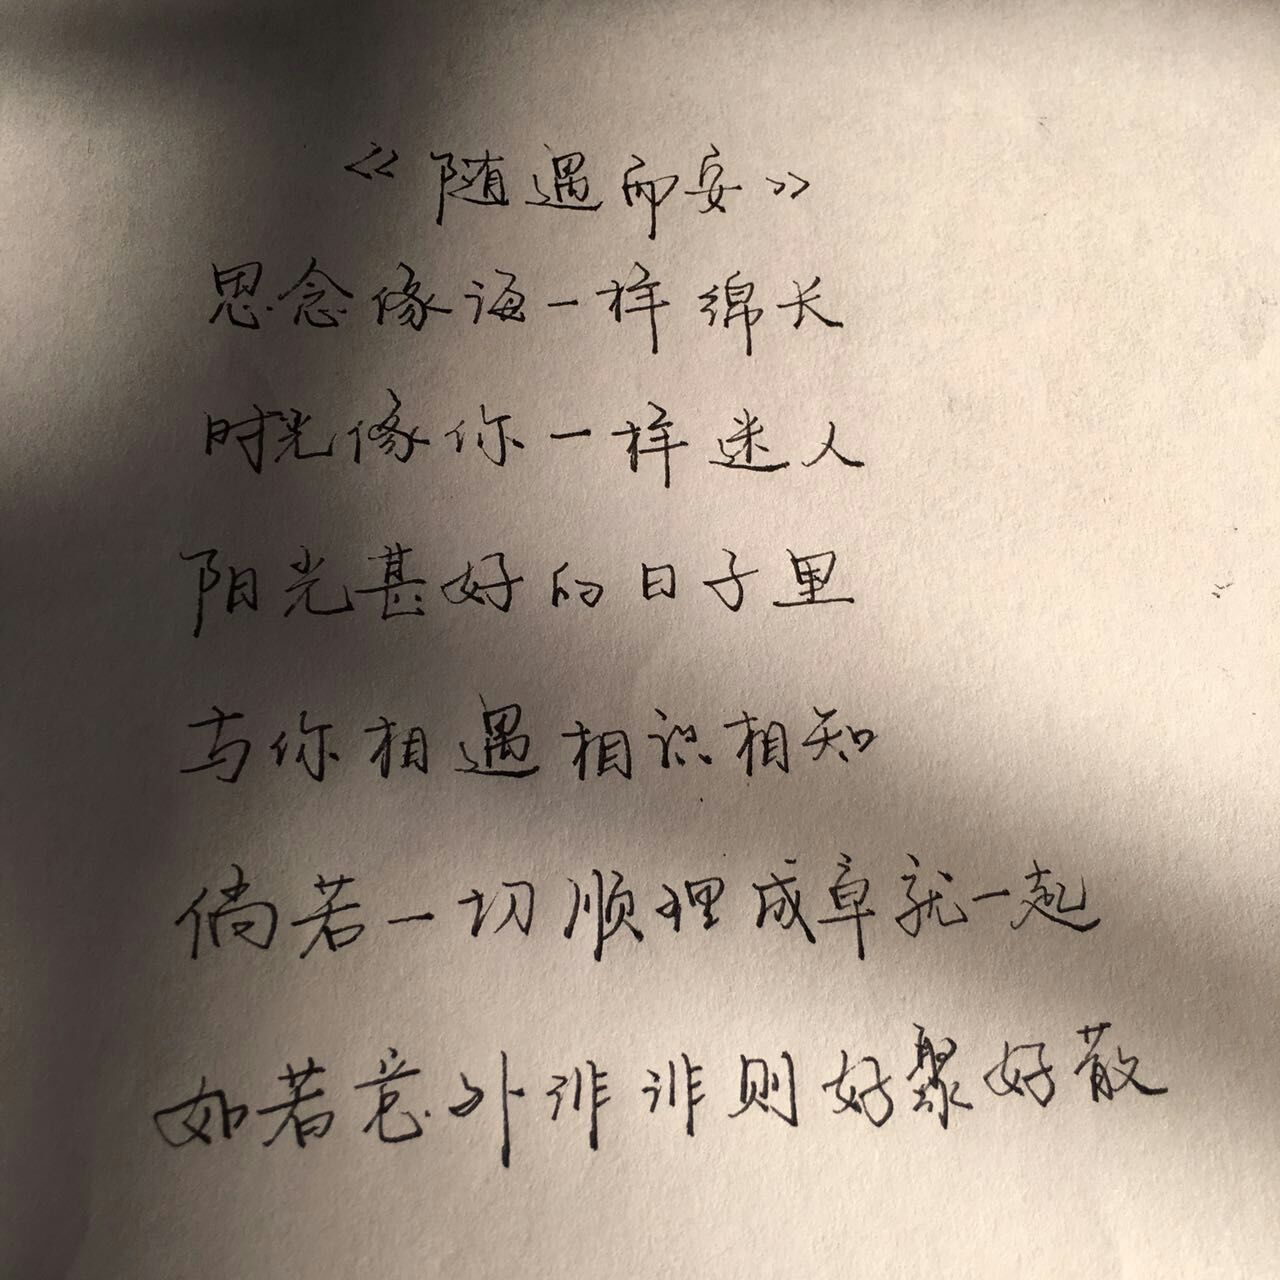 《随遇而安》
思念像海一样绵长
时光像你一样迷人
阳光甚好的日子里
与你相遇相识相知
倘若一切顺理成章就一起
如若意外非非则好聚好散